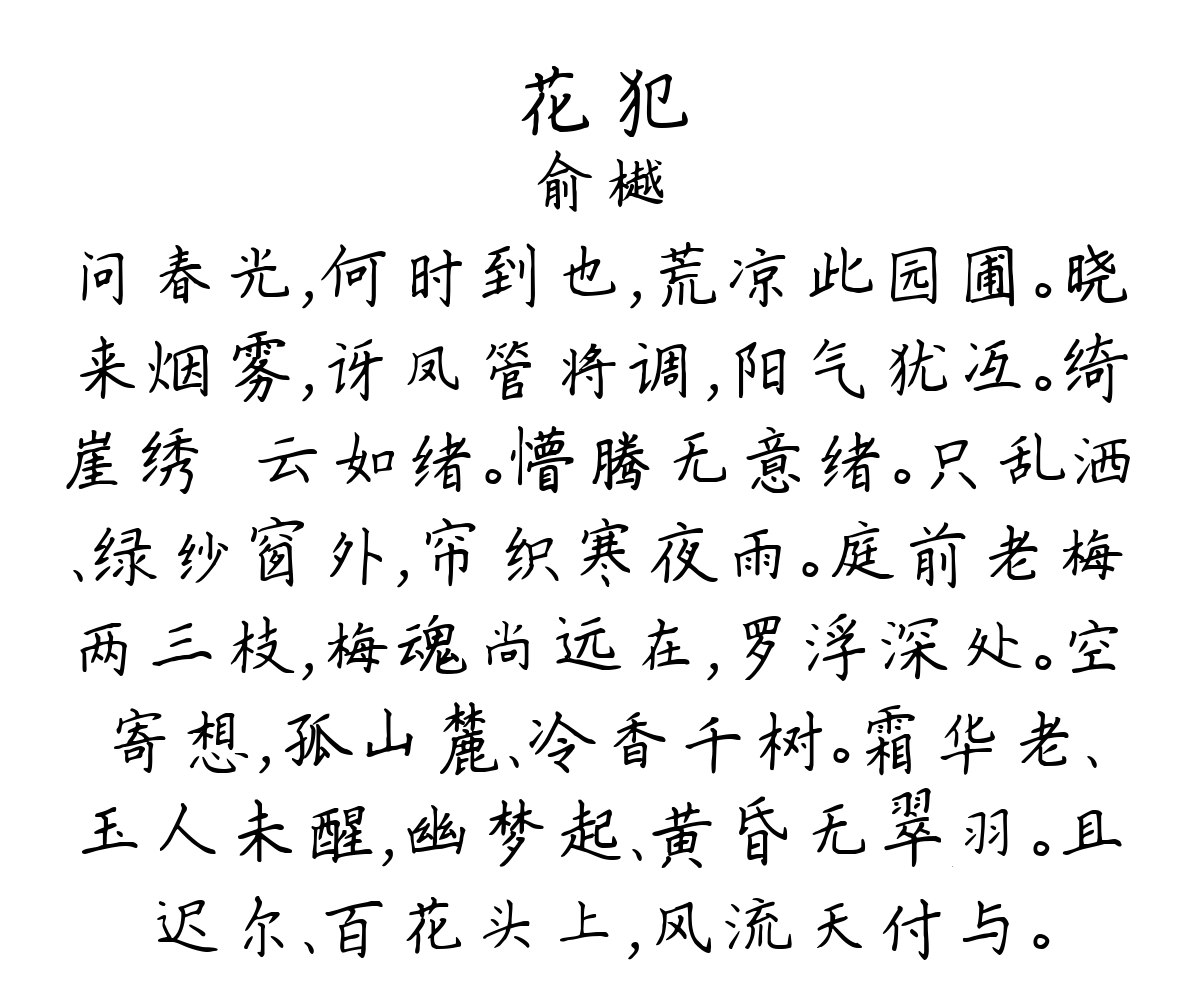 花犯
俞樾
问春光,何时到也,荒凉此园圃。晓
来烟雾,讶凤管将调,阳气犹冱。绮
崖绣 云如绪。懵腾无意绪。只乱洒
、绿纱窗外,帘织寒夜雨。庭前老梅
两三枝,梅魂尚远在,罗浮深处。空
寄想,孤山麓、冷香千树。霜华老、
玉人未醒,幽梦起、黄昏无翠羽。且
迟尔、百花头上,风流天付与。